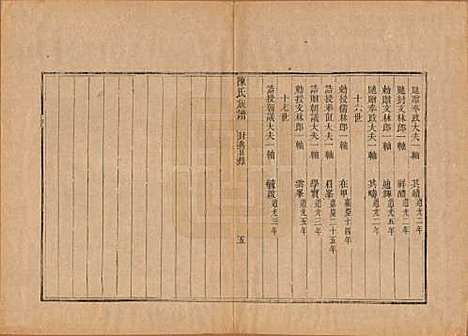 馳贈奉政大夫一軸 其績道光二年
馳封文林郎一軸 道光二年
勅贈文林郎一軸 道光五年
馳贈奉政大夫一軸 其疇道光二年
十六世
勅授儒林郎一軸 在甲嘉慶十四年
誥授奉直大夫一軸 嘉慶二十五年
誥贈朝議大夫一軸 學實道光三年
勅授文林郎一軸 雲峯道光五年
十七世
誥授朝議大夫一軸 道光三年
陳氏族譜 目錄 五